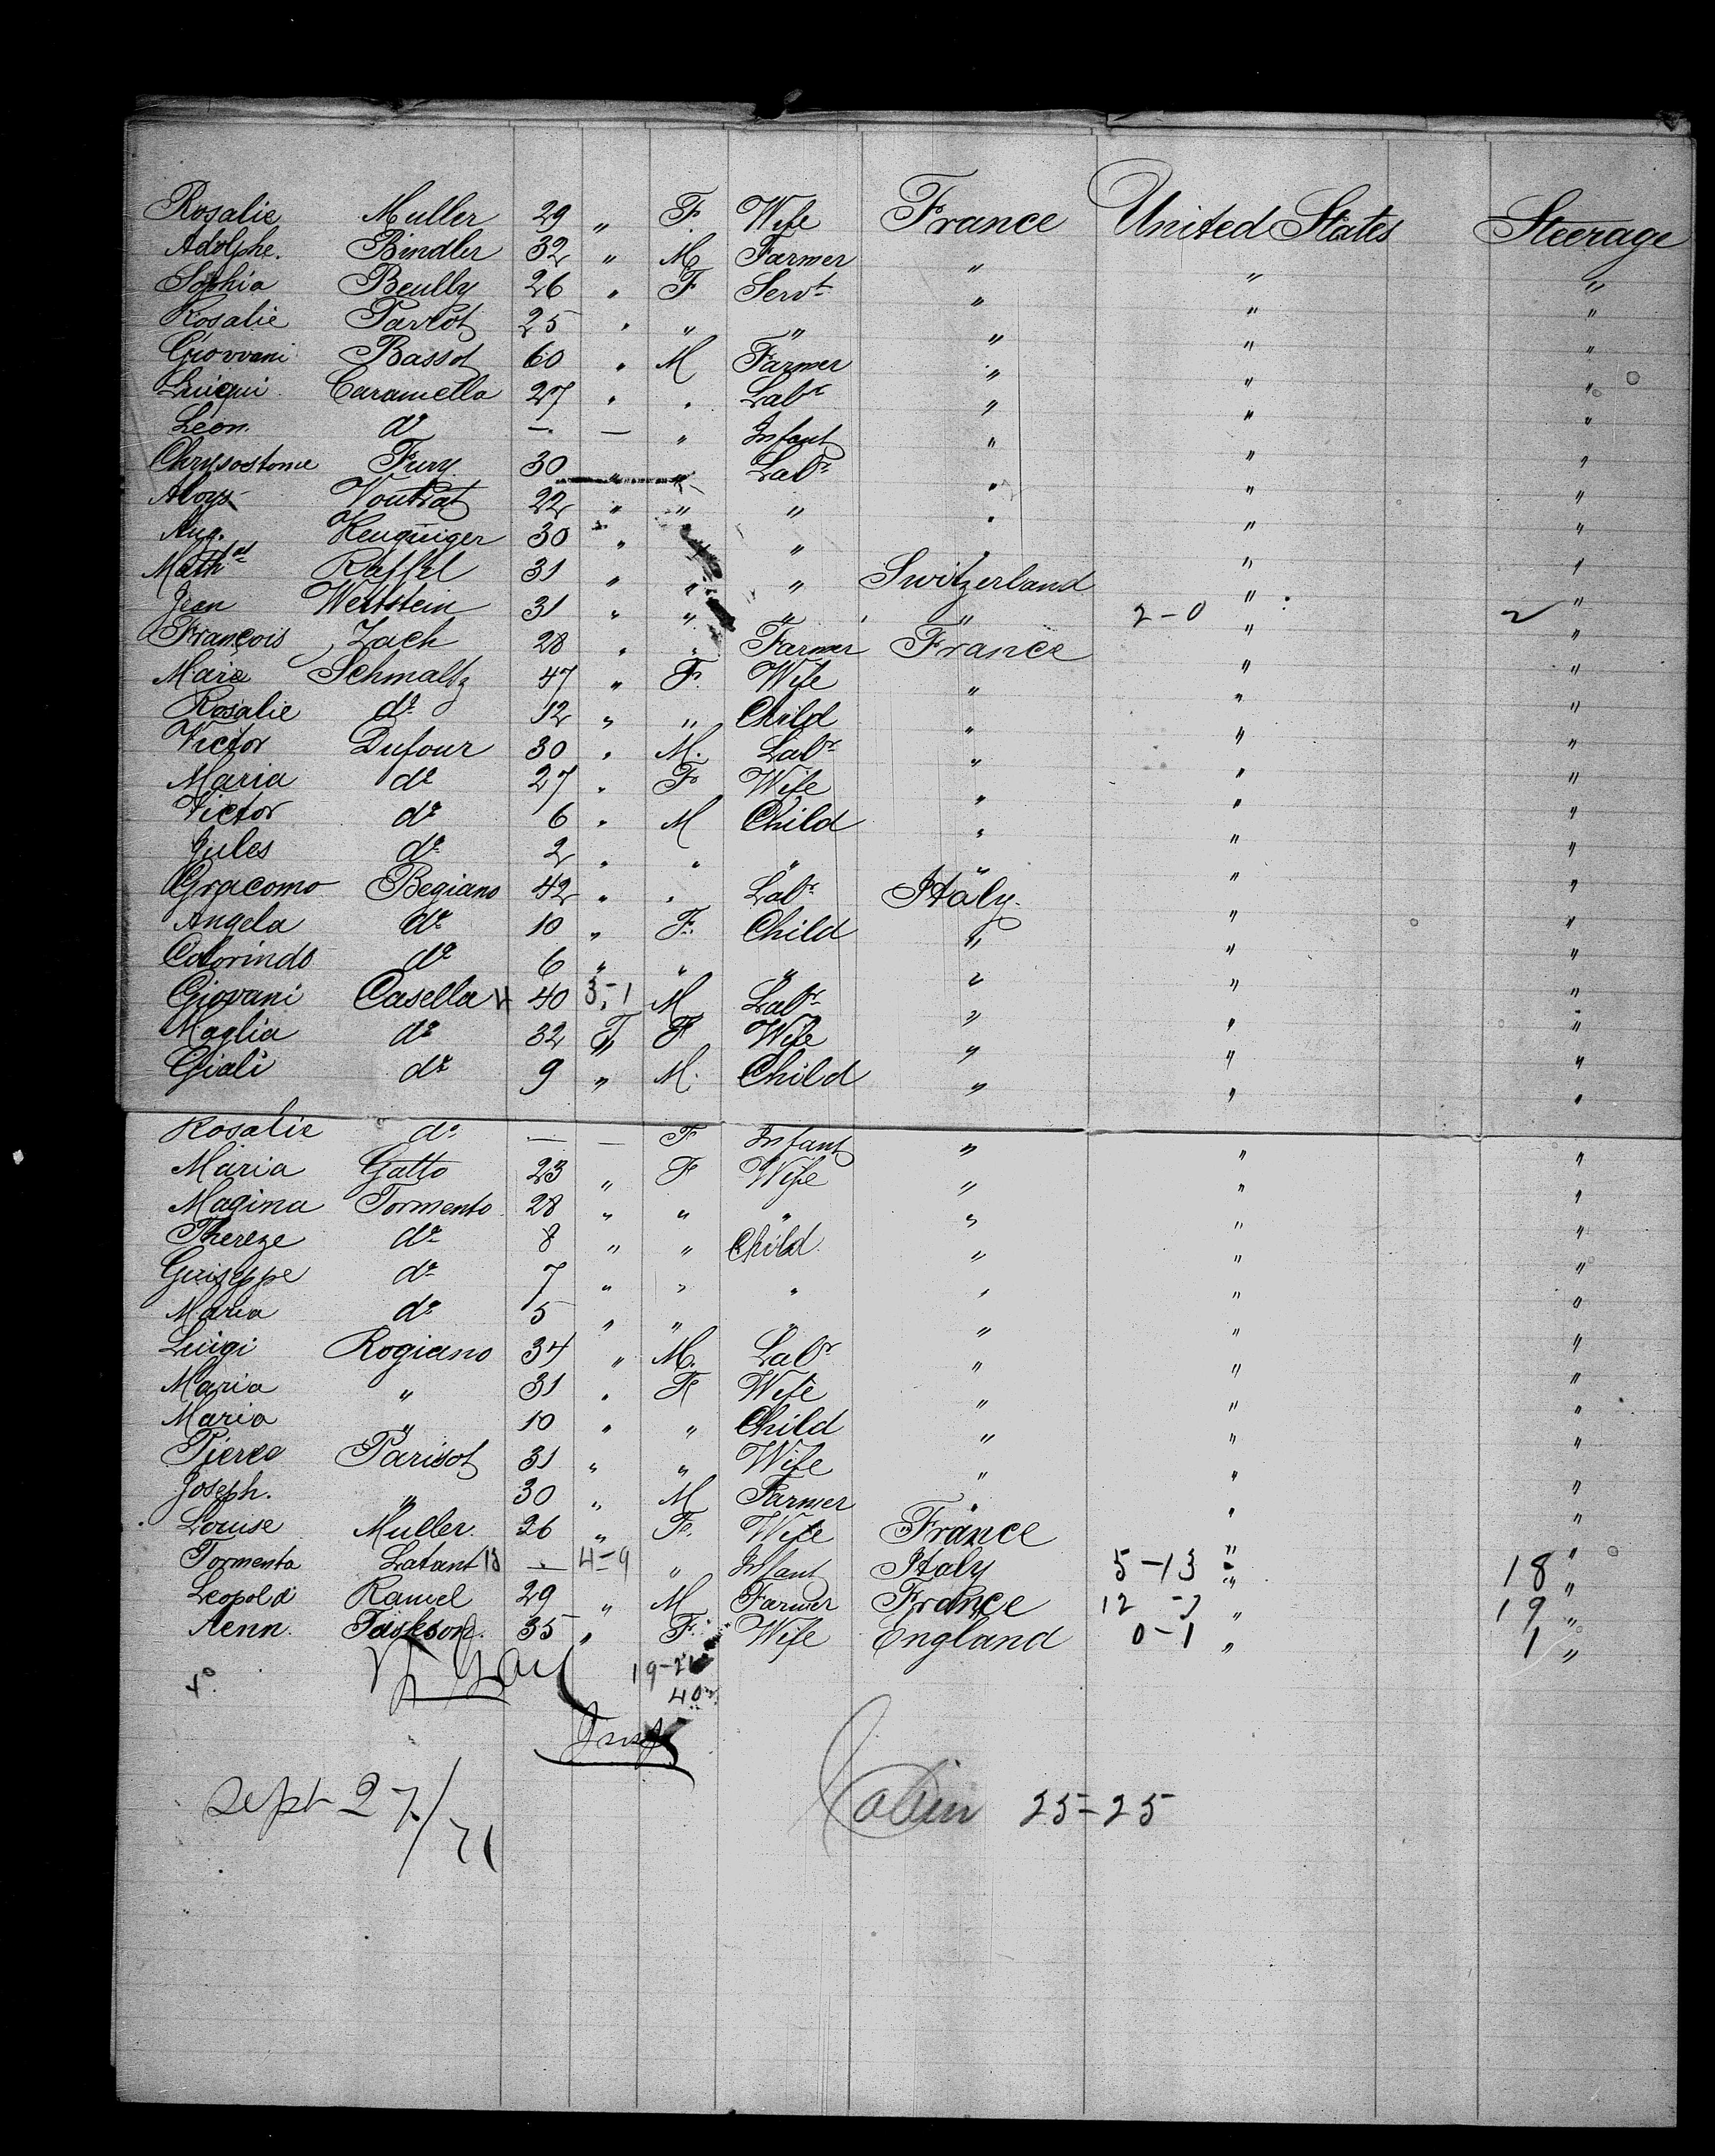 Rosalie Muller 29 " F. Wife France United States Steerage
Adolphe. Bindler 32 " M Farmer " " "
Sophia Beully 26 " F Servt " " "
Rosalie Parrot 25 " " " " " "
Giovvani Bassot 60 " M Farmer " " "
Luiqui Caramella 27 " " Labr " " "
Léon. do — — " Infant " " "
Chrysostome Fury 30 " " Labr " " "
Aloys Voutrat 22 " " " " " "
Aug. Heuquiger 30 " " " " " "
Raffel 31 " " " Switzerland " "
Jean Wettstein 31 " " " " 2-0 " 2 "
François Zach 28 " " Farmer France " "
Marie Schmaltz 47 " F. Wife " " "
Rosalie do 12 " " Child " " "
Victor Dufour 30 " M. Labr " " "
Maria do 27 " F Wife " " "
Victor do 6 " M Child " " "
Jules do 2 " " " " " "
Gracomo Begiano 42 " " Labr Italy. " "
Angela do 10 " F. Child " " "
Colorindo do 6 " " " " " "
Giovani Casella 40 3-1 M Labr " " "
Maglia do 32 " F Wife " " "
Giali do 9 " M. Child " " "
Rosalie do — — F Infant " " "
Maria Gatto 23 " F Wife " " "
Magima Tormento 28 " " " " " "
Thereze do 8 " " Child. " " "
Guiseppe do 7 " " " " " "
Maria do 5 " " " " " "
Luigi Rogiano 34 " M. Labr " " "
Maria " 31 " F Wife " " "
Maria " 10 " " Child " " "
Pierre Parisot 31 " " Wife " " "
Joseph. " 30 " M Farmer " " "
Louise Muller. 26 " F. Wife France " "
Tormenta Latant 13 — 4-9 " Infant Italy 5-13 " 18 "
Leopold Ramel 29 " M Farmer France 12 -7 " 19 "
Aenn. Jackson. 35 " F. Wife England 0-1 " 1 "
19-21
40
Insp
Cabin 25-25
Sept 27/71